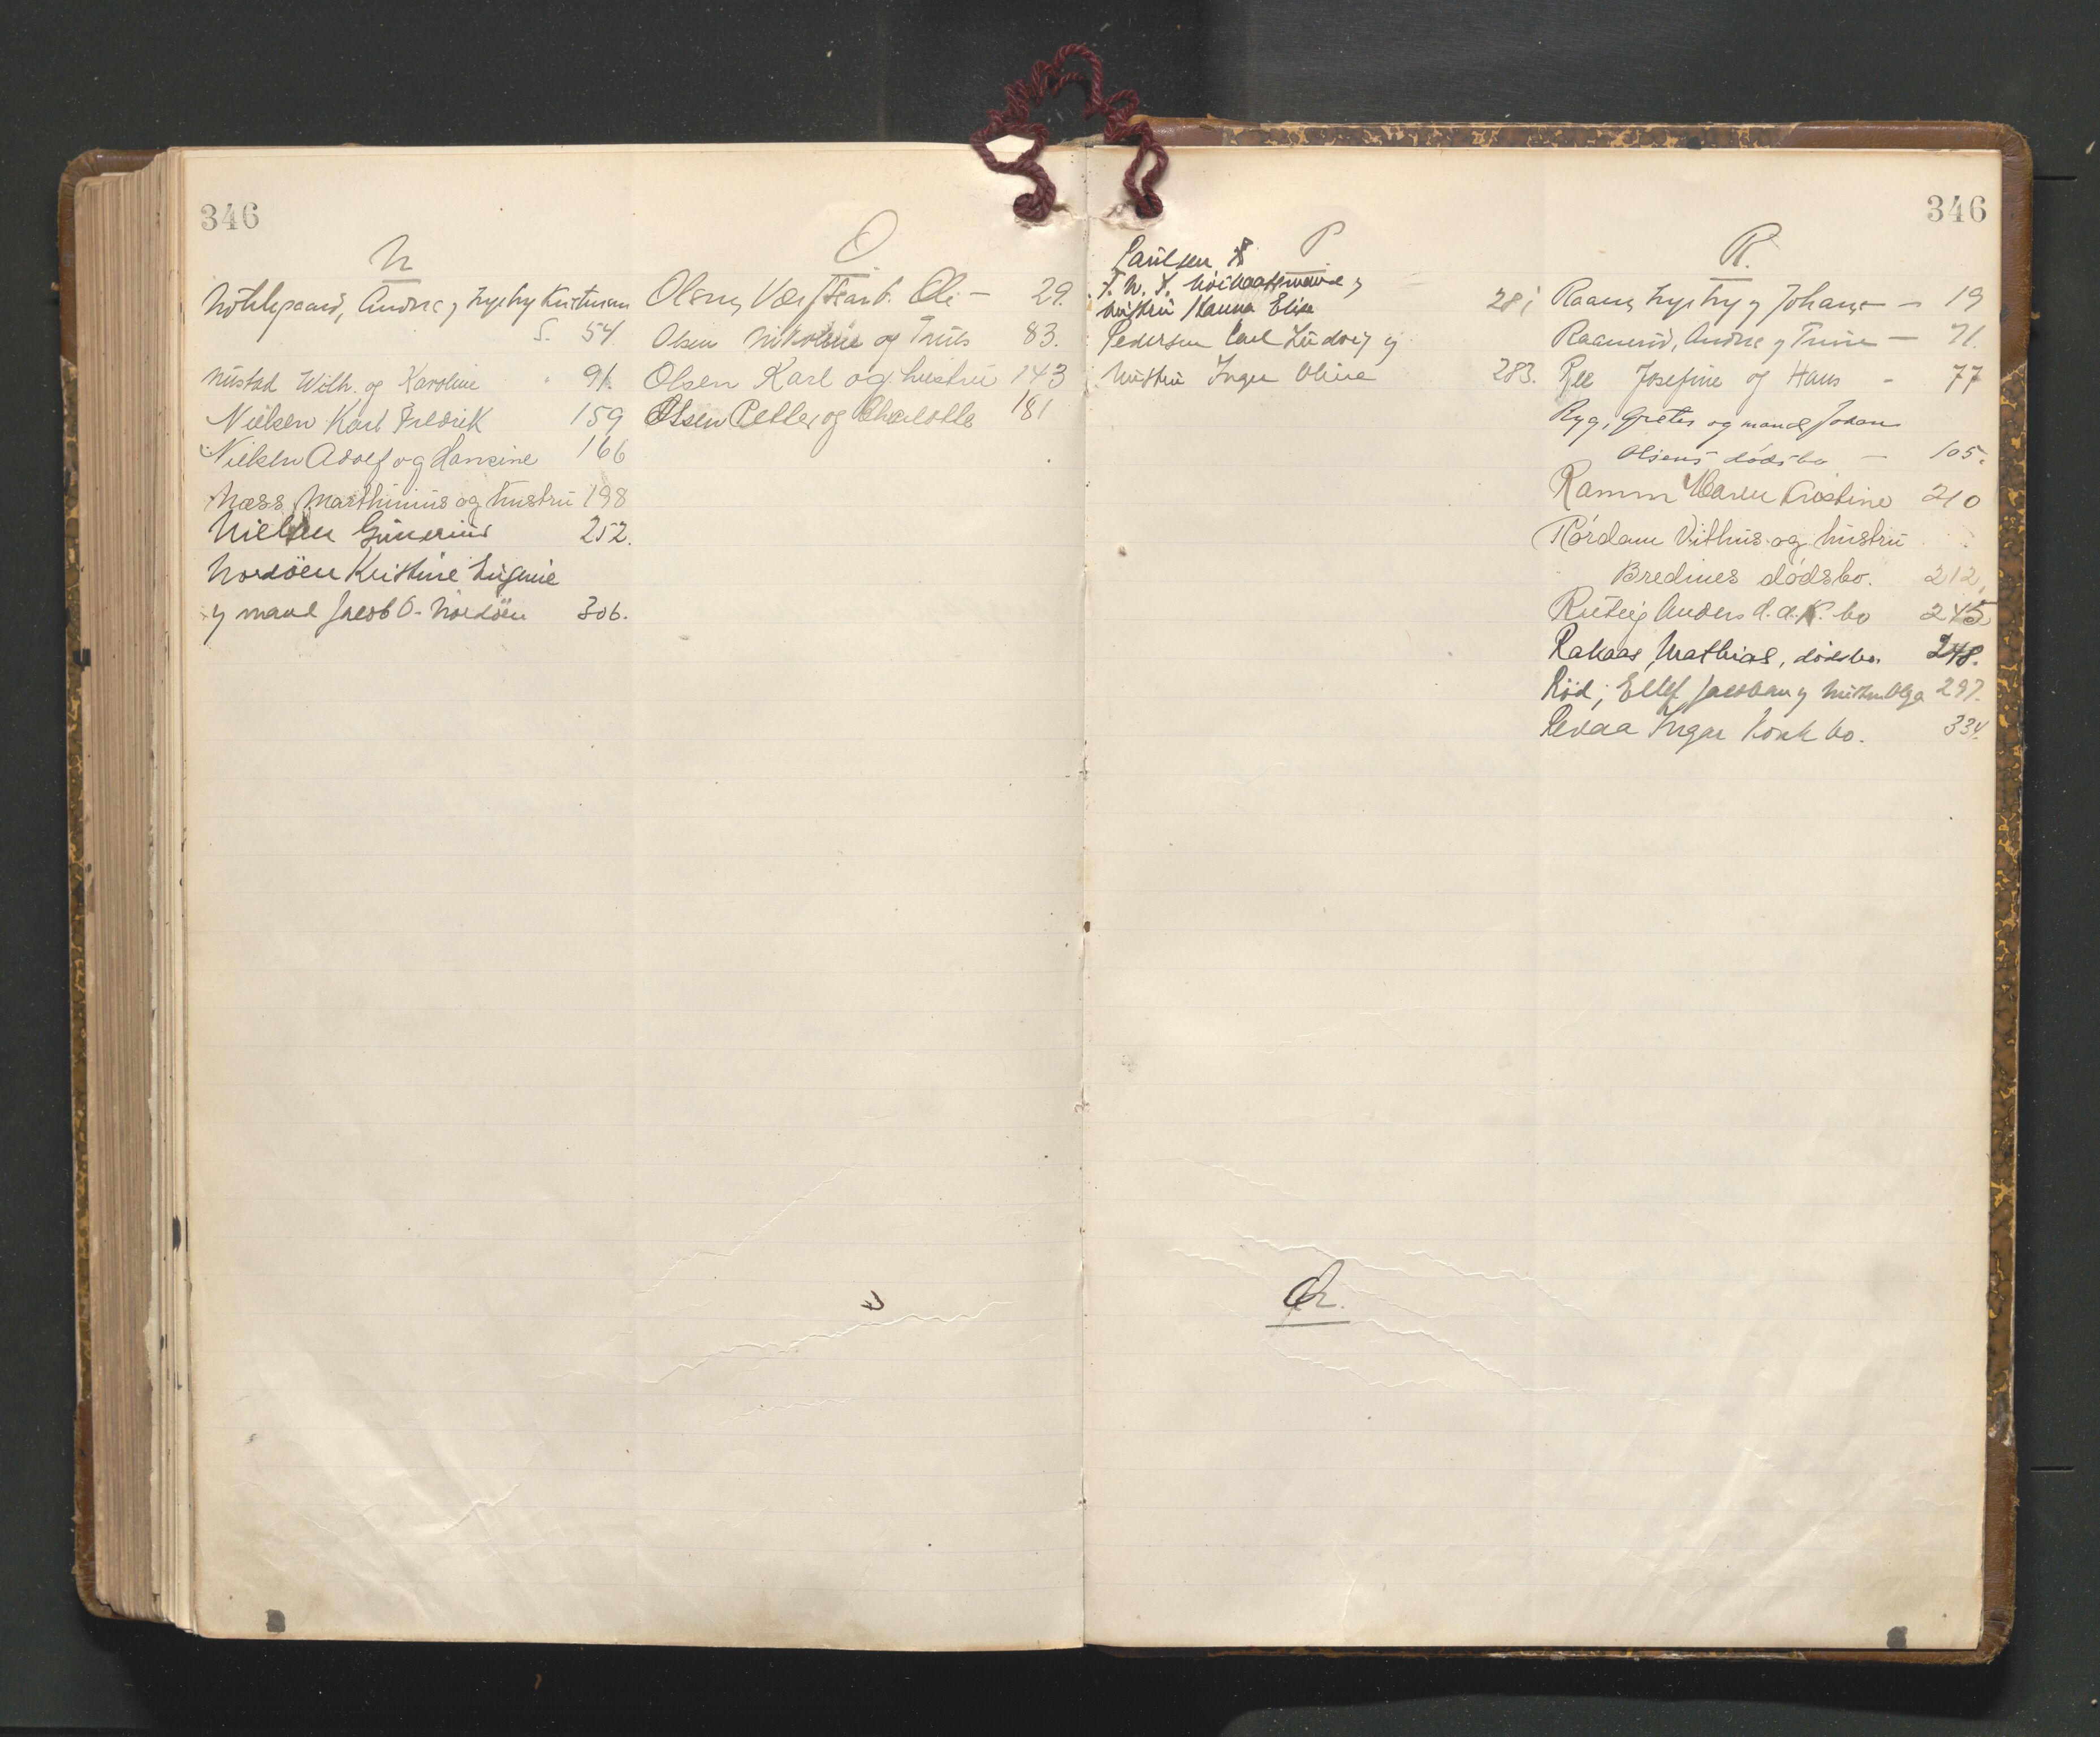 346
N
Nöklegaard, Andrea og Ingebr. Kristensen
S. 54.
Nustad Wilh. og Karoline 91.
Nielsen Karl Fredrik 159
Nielsen Adolf og Hansine 166
Næss, Marthinius og hustru 198
Nielsen Gunerius 252.
Nordöen Kristine Eugenie
og mand Jacob O. Nordöen 306.
O
Olsen, Værftsarb. Ole – 29.
Olsen Nikoline og Truls 83.
Olsen Karl og hustru 143
Olsen Petter og Charlotte 181
P
Paulsen
hustru Hanna Elise 281
Pedersen Carl Ludvig og
hustru Inger Oline 283.
Q.
346
R.
Raaen, Ingebr. og Johanne – 19
Raanerud, Andrea og Trine – 71.
Ree Josefine og Hans – 77
Ryg, Grete og mand Johan
Olsens dødsbo – 105.
Ramm Maren Kristine 210
Rørdam Vithus og hustru
Bredines dødsbo. 212.
Anders d. a. K. bo 245
Rakaas, Mathias, dødsbo. 248.
Röd, Ellef Jacobsen og hustru Olga 297.
Revaa Ingar Konk bo. 334.